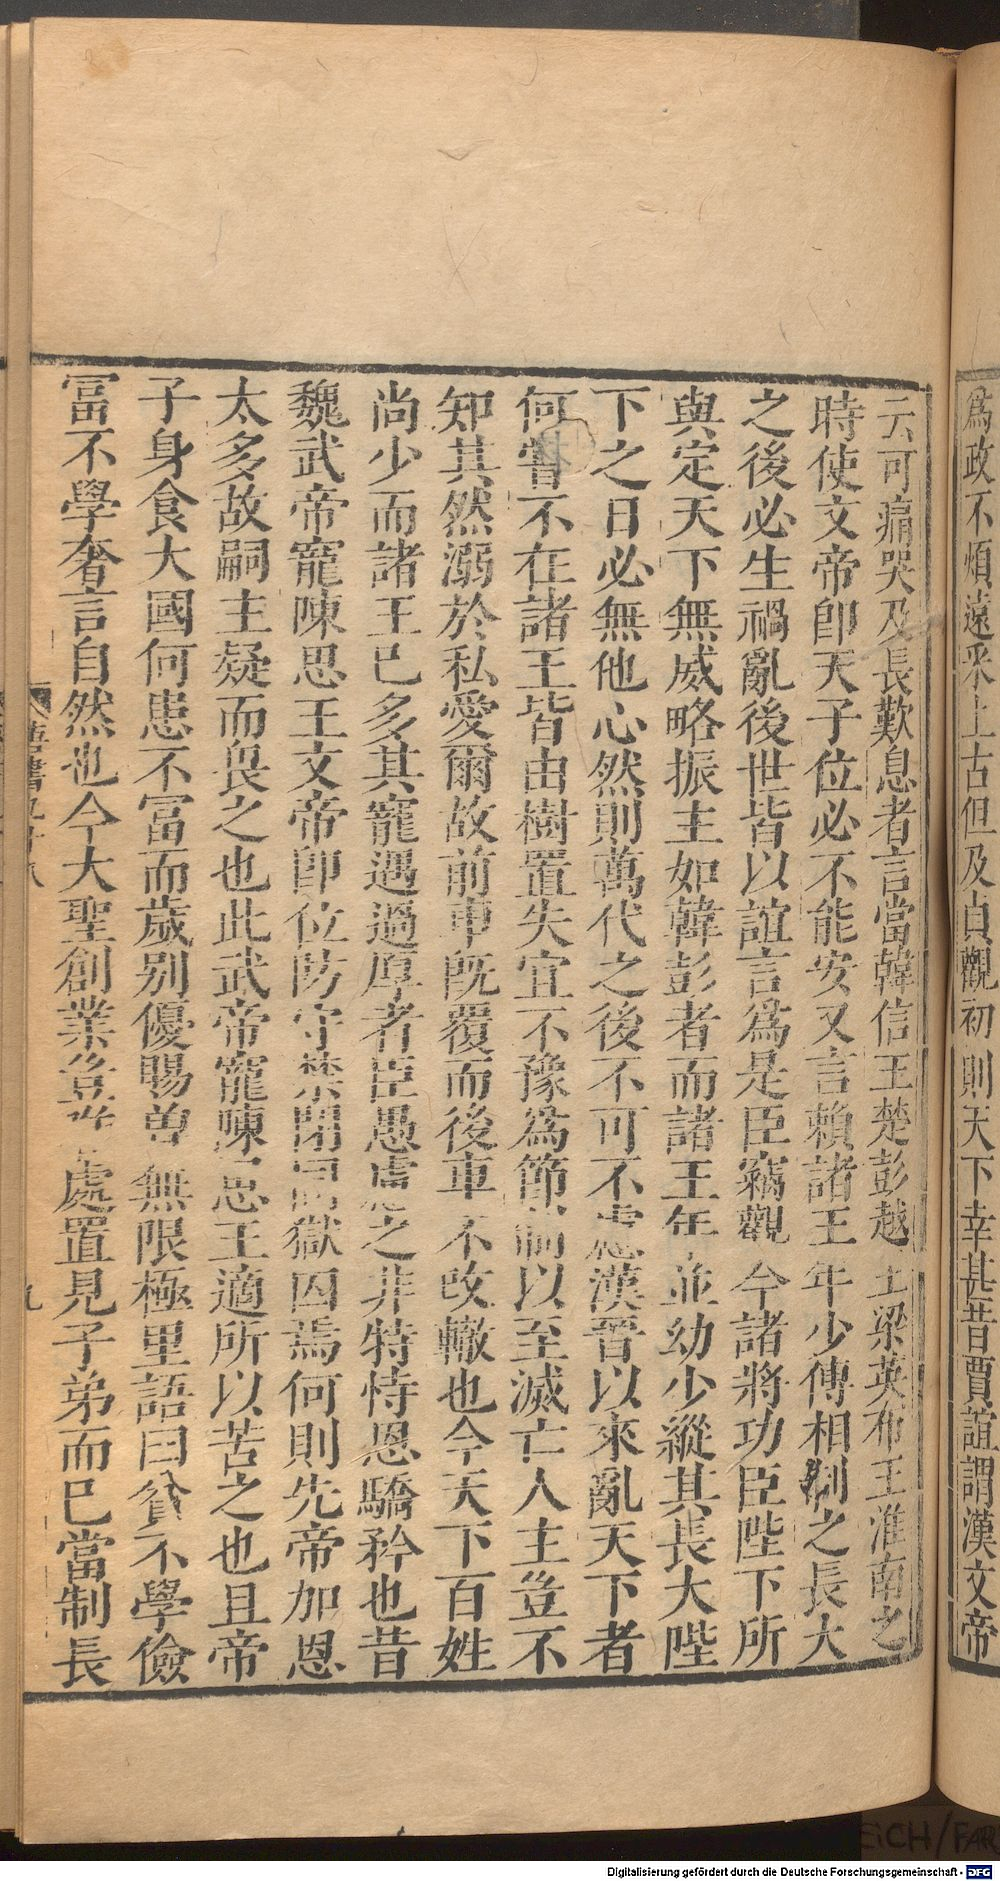 爲政不煩遠釆上古但及貞觀初則天下幸甚昔賈誼謂漢文帝
云可痛哭及長歎息者言當韓信王楚彭越王梁英布王淮南之
時使文帝卽天子位必不能安又言賴諸王年少傅相制之長大
之後必生禍亂後世皆以誼言爲是臣竊觀今諸將功臣陛下所
與定天下無威略振主如韓彭者而諸王年並幼少縱其長大陛
下之日必無他心然則萬代之後不可不慮漢晉以來亂天下者
何嘗不在諸王皆由樹置失宜不豫爲節制以至滅亡人主豈不
知其然溺於私愛爾故前車旣覆而後車不改轍也今天下百姓
尚少而諸王已多其寵遇過厚者臣愚慮之非特恃恩驕矜也昔
魏武帝寵陳思王文帝卽位防守禁閉同獄囚焉何則先帝加恩
太多故嗣主疑而畏之也此武帝寵陳思王適所以苦之也且帝
子身食大國何患不冨而歲別優賜曾無限極里語曰貧不學儉
冨不學奢言自然也今大聖創業豈唯處置見子弟而已當制長
唐書九十八
九
Digitalisierung gefördert durch die Deutsche Forschungsgemeinschaft - DFG